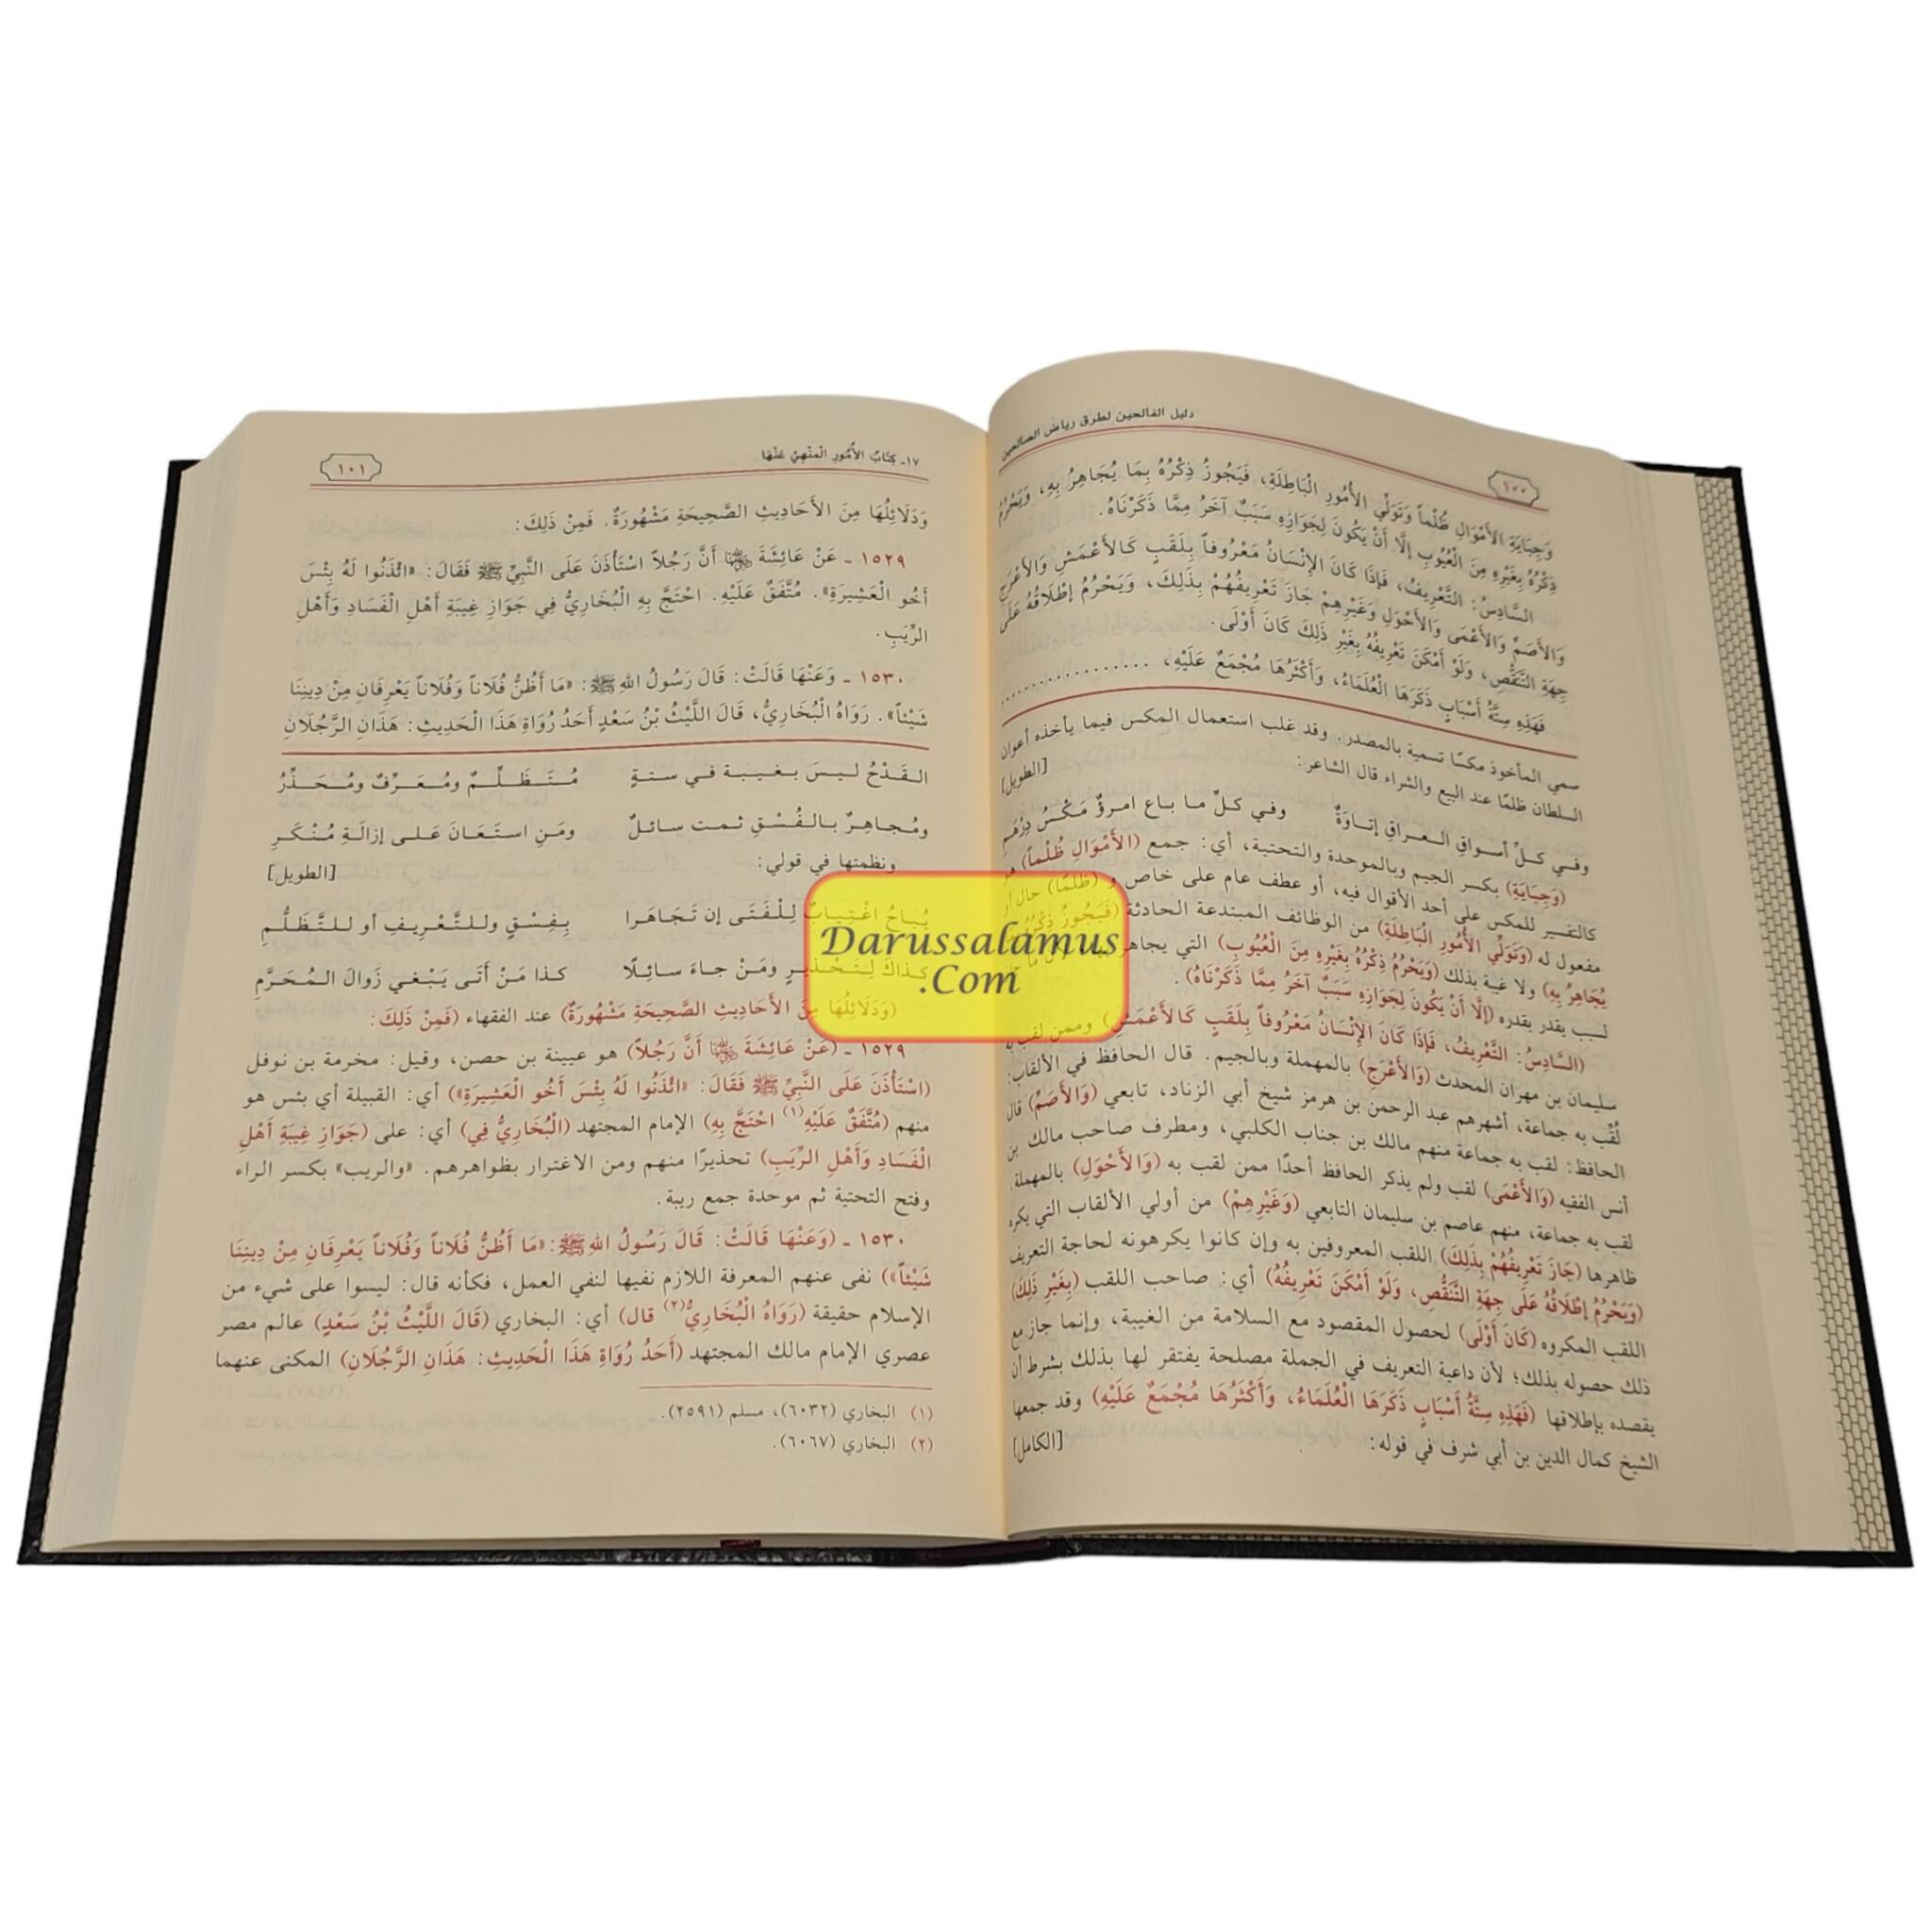 دليل الفالحين لطرق رياض الصالحين
١٠٠
وَجِبَايَةِ الأَمْوَالِ ظُلْماً وَتَوَلِّي الأُمُورِ الْبَاطِلَةِ، فَيَجُوزُ ذِكْرُهُ بِمَا يُجَاهِرُ بِهِ، وَيَحْرُمُ
ذِكْرُهُ بِغَيْرِهِ مِنَ الْعُيُوبِ إلَّا أَنْ يَكُونَ لِجَوَازِهِ سَبَبٌ آخَرُ مِمَّا ذَكَرْنَاهُ.
السَّادِسُ: التَّعْرِيفُ، فَإِذَا كَانَ الإِنْسَانُ مَعْرُوفاً بِلَقَبٍ كَالأَعْمَشِ وَالأَعْرَجِ
وَالأَصَمِّ وَالأَعْمَى وَالأَحْوَلِ وَغَيْرِهِمْ جَازَ تَعْرِيفُهُمْ بِذَلِكَ، وَيَحْرُمُ إِطْلَاقُهُ عَلَى
جِهَةِ التَّنَقُّصِ، وَلَوْ أَمْكَنَ تَعْرِيفُهُ بِغَيْرِ ذَلِكَ كَانَ أَوْلَى.
فَهَذِهِ سِتَّةُ أَسْبَابٍ ذَكَرَهَا الْعُلَمَاءُ، وَأَكْثَرُهَا مُجْمَعٌ عَلَيْهِ، ..................
سمي المأخوذ مكسًا تسمية بالمصدر. وقد غلب استعمال المكس فيما يأخذه أعوان
السلطان ظلمًا عند البيع والشراء قال الشاعر: [الطويل]
وفي كلِّ أسواقِ العراقِ إتاوَةٌ وفي كلِّ ما باع امرؤٌ مَكْسُ دِرْهَمِ
(وَجِبَايَةِ) بكسر الجيم وبالموحدة والتحتية، أي: جمع (الأَمْوَالِ ظُلْماً) هو
كالتفسير للمكس على أحد الأقوال فيه، أو عطف عام على خاص و (ظلمًا) حال أو
مفعول له (وَتَوَلِّي الأُمُورِ الْبَاطِلَةِ) من الوظائف المبتدعة الحادثة (فَيَجُوزُ ذِكْرُهُ
يُجَاهِرُ بِهِ) ولا غيبة بذلك (وَيَحْرُمُ ذِكْرُهُ بِغَيْرِهِ مِنَ الْعُيُوبِ) التي يجاهر
لسبب يقدر بقدره (إلَّا أَنْ يَكُونَ لِجَوَازِهِ سَبَبٌ آخَرُ مِمَّا ذَكَرْنَاهُ).
(السَّادِسُ: التَّعْرِيفُ، فَإِذَا كَانَ الإِنْسَانُ مَعْرُوفاً بِلَقَبٍ كَالأَعْمَشِ) وممن لقب به
سليمان بن مهران المحدث (وَالأَعْرَجِ) بالمهملة وبالجيم. قال الحافظ في الألقاب:
لُقِّب به جماعة، أشهرهم عبد الرحمن بن هرمز شيخ أبي الزناد، تابعي (وَالأَصَمِّ) قال
الحافظ: لقب به جماعة منهم مالك بن جناب الكلبي، ومطرف صاحب مالك بن
أنس الفقيه (وَالأَعْمَى) لقب ولم يذكر الحافظ أحدًا ممن لقب به (وَالأَحْوَلِ) بالمهملة.
لقب به جماعة، منهم عاصم بن سليمان التابعي (وَغَيْرِهِمْ) من أولي الألقاب التي يكره
ظاهرها (جَازَ تَعْرِيفُهُمْ بِذَلِكَ) اللقب المعروفين به وإن كانوا يكرهونه لحاجة التعريف
(وَيَحْرُمُ إِطْلَاقُهُ عَلَى جِهَةِ التَّنَقُّصِ، وَلَوْ أَمْكَنَ تَعْرِيفُهُ) أي: صاحب اللقب (بِغَيْرِ ذَلِكَ)
اللقب المكروه (كَانَ أَوْلَى) لحصول المقصود مع السلامة من الغيبة، وإنما جاز مع
ذلك حصوله بذلك؛ لأن داعية التعريف في الجملة مصلحة يفتقر لها بذلك بشرط أن
يقصده بإطلاقها (فَهَذِهِ سِتَّةُ أَسْبَابٍ ذَكَرَهَا الْعُلَمَاءُ، وَأَكْثَرُهَا مُجْمَعٌ عَلَيْهِ) وقد جمعها
الشيخ كمال الدين بن أبي شرف في قوله: [الكامل]
١٧- كِتَابُ الأُمُورِ الْمَنْهِيِّ عَنْهَا
١٠١
وَدَلَائِلُهَا مِنَ الأَحَادِيثِ الصَّحِيحَةِ مَشْهُورَةٌ. فَمِنْ ذَلِكَ:
١٥٢٩ - عَنْ عَائِشَةَ رضي الله عنها أَنَّ رَجُلاً اسْتَأْذَنَ عَلَى النَّبِيِّ ﷺ فَقَالَ: «ائْذَنُوا لَهُ بِئْسَ
أَخُو الْعَشِيرَةِ». مُتَّفَقٌ عَلَيْهِ. احْتَجَّ بِهِ الْبُخَارِيُّ فِي جَوَازِ غِيبَةِ أَهْلِ الْفَسَادِ وَأَهْلِ
الرِّيَبِ.
١٥٣٠ - وَعَنْهَا قَالَتْ: قَالَ رَسُولُ اللهِ ﷺ: «مَا أَظُنُّ فُلَاناً وَفُلَاناً يَعْرِفَانِ مِنْ دِينِنَا
شَيْئاً». رَوَاهُ الْبُخَارِيُّ، قَالَ اللَّيْثُ بْنُ سَعْدٍ أَحَدُ رُوَاةِ هَذَا الْحَدِيثِ: هَذَانِ الرَّجُلَانِ
القَدْحُ ليسَ بغيبة في ستةٍ مُتَظَلِّمٌ ومُعَرِّفٌ ومُحَذِّرُ
ومُجاهِرٌ بالفُسْقِ ثمت سائلٌ ومَنِ استَعَانَ عَلى إزالَةِ مُنْكَرِ
ونظمتها في قولي: [الطويل]
يُبَاحُ اغْتِيابٌ لِلْفَتَى إن تَجَاهَرا بِفِسْقٍ وللتَّعْرِيفِ أو للتَّظَلُّمِ
كذاكَ لِتَحْذيرٍ ومَنْ جاءَ سائِلًا كذا مَنْ أَتَى يَبْغي زَوالَ المُحَرَّمِ
(وَدَلَائِلُهَا مِنَ الأَحَادِيثِ الصَّحِيحَةِ مَشْهُورَةٌ) عند الفقهاء (فَمِنْ ذَلِكَ:
١٥٢٩ - (عَنْ عَائِشَةَ رضي الله عنها أَنَّ رَجُلاً) هو عيينة بن حصن، وقيل: مخرمة بن نوفل
(اسْتَأْذَنَ عَلَى النَّبِيِّ ﷺ فَقَالَ: «ائْذَنُوا لَهُ بِئْسَ أَخُو الْعَشِيرَةِ») أي: القبيلة أي بئس هو
منهم (مُتَّفَقٌ عَلَيْهِ(١) احْتَجَّ بِهِ) الإمام المجتهد (الْبُخَارِيُّ فِي) أي: على (جَوَازِ غِيبَةِ أَهْلِ
الْفَسَادِ وَأَهْلِ الرِّيَبِ) تحذيرًا منهم ومن الاغترار بظواهرهم. «والريب» بكسر الراء
وفتح التحتية ثم موحدة جمع ريبة.
١٥٣٠ - (وَعَنْهَا قَالَتْ: قَالَ رَسُولُ اللهِ ﷺ: «مَا أَظُنُّ فُلَاناً وَفُلَاناً يَعْرِفَانِ مِنْ دِينِنَا
شَيْئاً») نفى عنهم المعرفة اللازم نفيها لنفي العمل، فكأنه قال: ليسوا على شيء من
الإسلام حقيقة (رَوَاهُ الْبُخَارِيُّ(٢) قال) أي: البخاري (قَالَ اللَّيْثُ بْنُ سَعْدٍ) عالم مصر
عصري الإمام مالك المجتهد (أَحَدُ رُوَاةِ هَذَا الْحَدِيثِ: هَذَانِ الرَّجُلَانِ) المكنى عنهما
(١) البخاري (٦٠٣٢)، مسلم (٢٥٩١).
(٢) البخاري (٦٠٦٧).
Darussalamus
.Com